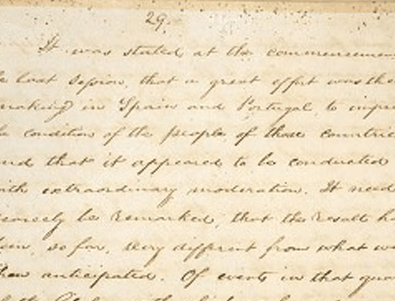 29.
It was stated at the commencemen
e last session, that a great effort was the
making in Spain and Portugal, to impro
e condition of the people of those countrie
and that it appeared to be conducted
ith extraordinary moderation. It need
carcely be remarked, that the result ha
been, so far, very different from what wa
then anticipated. Of events in that quar